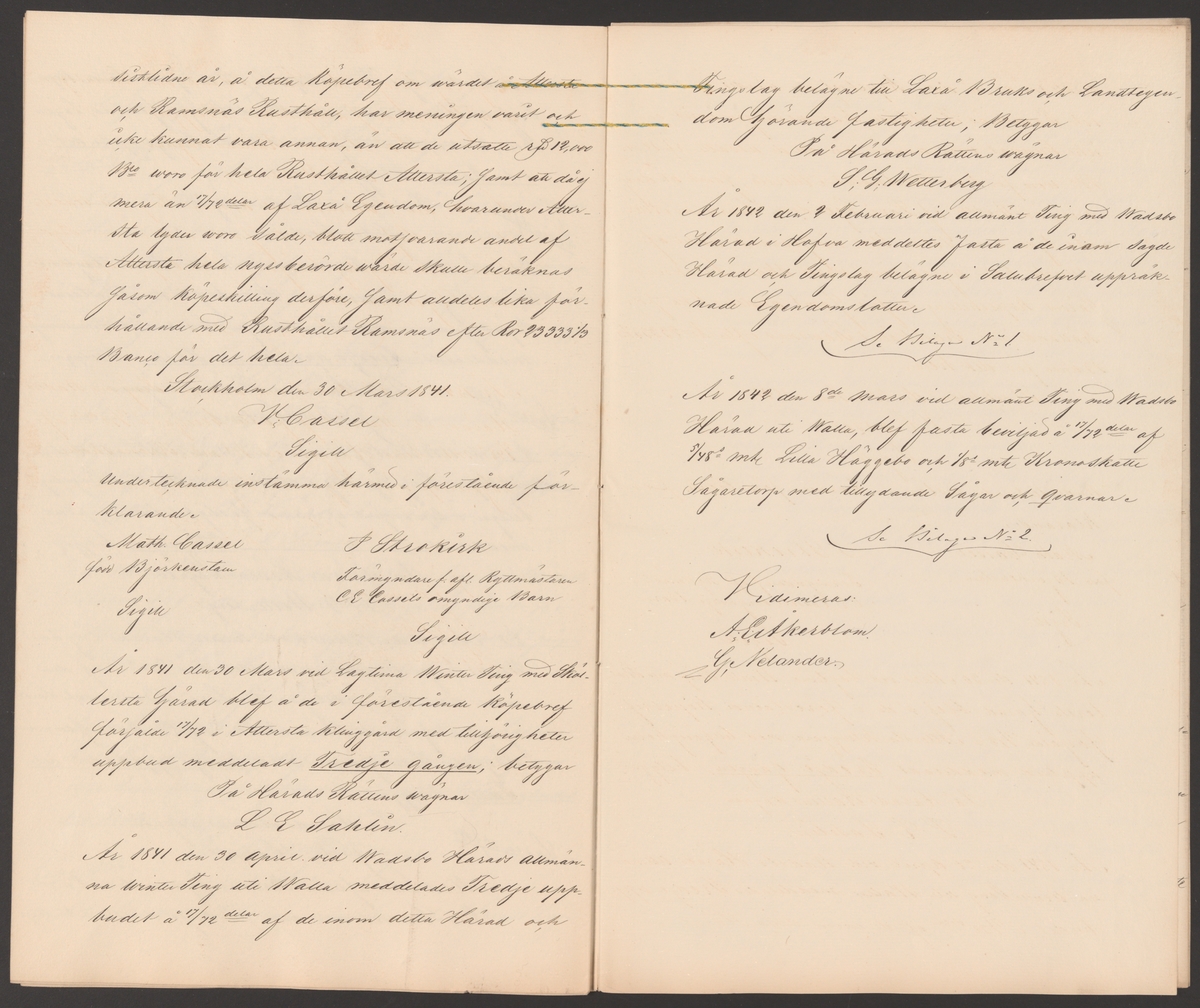 sistlidne år, å detta Köpebref om wärdet å Attersta
och Ramsnäs Rusthåll, har meningen varit och
icke kunnat vara annan, än att de utsatte rf 12,000
Bco woro för hela Rusthållet Attersta; samt att då ej
mera än 17/72 delar af Laxå Egendom, hvarunder Atter-
sta lyder woro sålde, blott motsvarande andel af
Attersta hela nyssberörde wärde skulle beräknas
såsom köpeskilling derföre, samt alldeles lika för-
hållande med Rusthållet Ramsnäs efter Rdr 23333 1/3
Banco för det hela.
Stockholm den 30 Mars 1841.
V. Cassel
Sigill
Undertecknade instämma härmed i förestående för-
klarande.
Math. Cassel
född Björkenstam
Sigill
P Strokirk
Förmyndare f. afl. Ryttmästaren
C E Cassels omyndige Barn
Sigill
År 1841 den 30 Mars vid Lagtima Winter Ting med Skyl-
lersta Härad blef å de i förestående Köpebref
försålde 17/72 i Attersta Klinggård med tillhörigheter
uppbud meddeladt Tredje gången; betygar
På Härads Rättens wägnar
L E Sahlin.
År 1841 den 30 April vid Wadsbo Härads allmän-
na winter Ting uti Walla meddelades Tredje upp-
budet å 17/72 delar af de inom detta Härad och
Tingslag belägne till Laxå Bruks och Landtegen-
dom hörande fastigheter; Betygar
På Härads Rättens wägnar
S. G. Wetterberg
År 1842 den 2 Februari vid allmänt Ting med Wadsbo
Härad i Hofva meddeltes fasta å de inom sagde
Härad och Tingslag belägne i Salubrefvet uppräk-
nade Egendomslotter.
Se Bilaga No 1
År 1842 den 8de Mars vid allmänt Ting med Wadsbo
Härad uti Walla, blef fasta beviljad å 17/72 delar af
5/48s mtl Lilla Häggebo och 1/8s mtl Kronoskatte
Sågaretorp med tillydande Sågar och qvarnar.
Se Bilaga No 2.
Vidimeras:
A. E. Åkerblom.
G. Nelander.